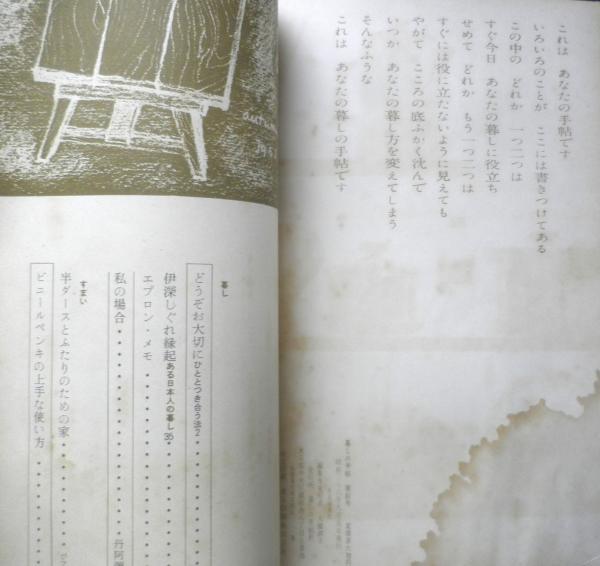 これは あなたの手帖です
いろいろのことが ここには書きつけてある
この中の どれか 一つ二つは
すぐ今日 あなたの暮しに役立ち
せめて どれか もう一つ二つは
すぐには役に立たないように見えても
やがて こころの底ふかく沈んで
いつか あなたの暮し方を変えてしまう
そんなふうな
これは あなたの暮しの手帖です
暮し
どうぞお大切に ひととつき合う法2
伊深しぐれ縁起 ある日本人の暮し35
エプロン・メモ
私の場合
すまい
半ダースとふたりのための家
ビニールペンキの上手な使い方